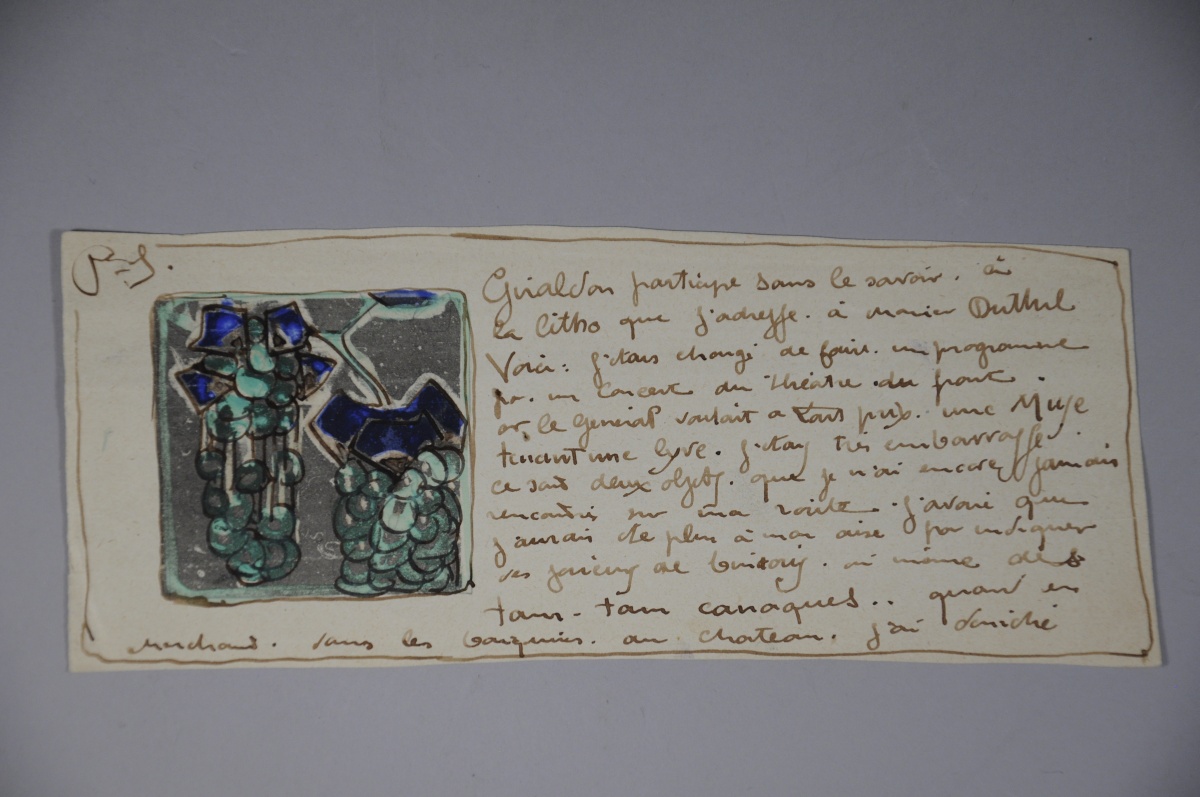 P.S.
Giraldon participe sans le savoir. à
la litho que j'adresse. à
Voici: j'étais chargé de faire. un programme
pr. un concert du théâtre du front.
or le General voulait a tout prix. une Muse
tenant une lyre. j'étais très embarrassé.
ce sont deux objets. que je n'ai encore jamais
rencontrés sur ma route. j'avoue que
j'aurais été plus à mon aise por indiquer
des joueurs de. ou même des
tam-tam canaques.. quand en
cherchant. dans les bouquins. au chateau. j'ai déniché